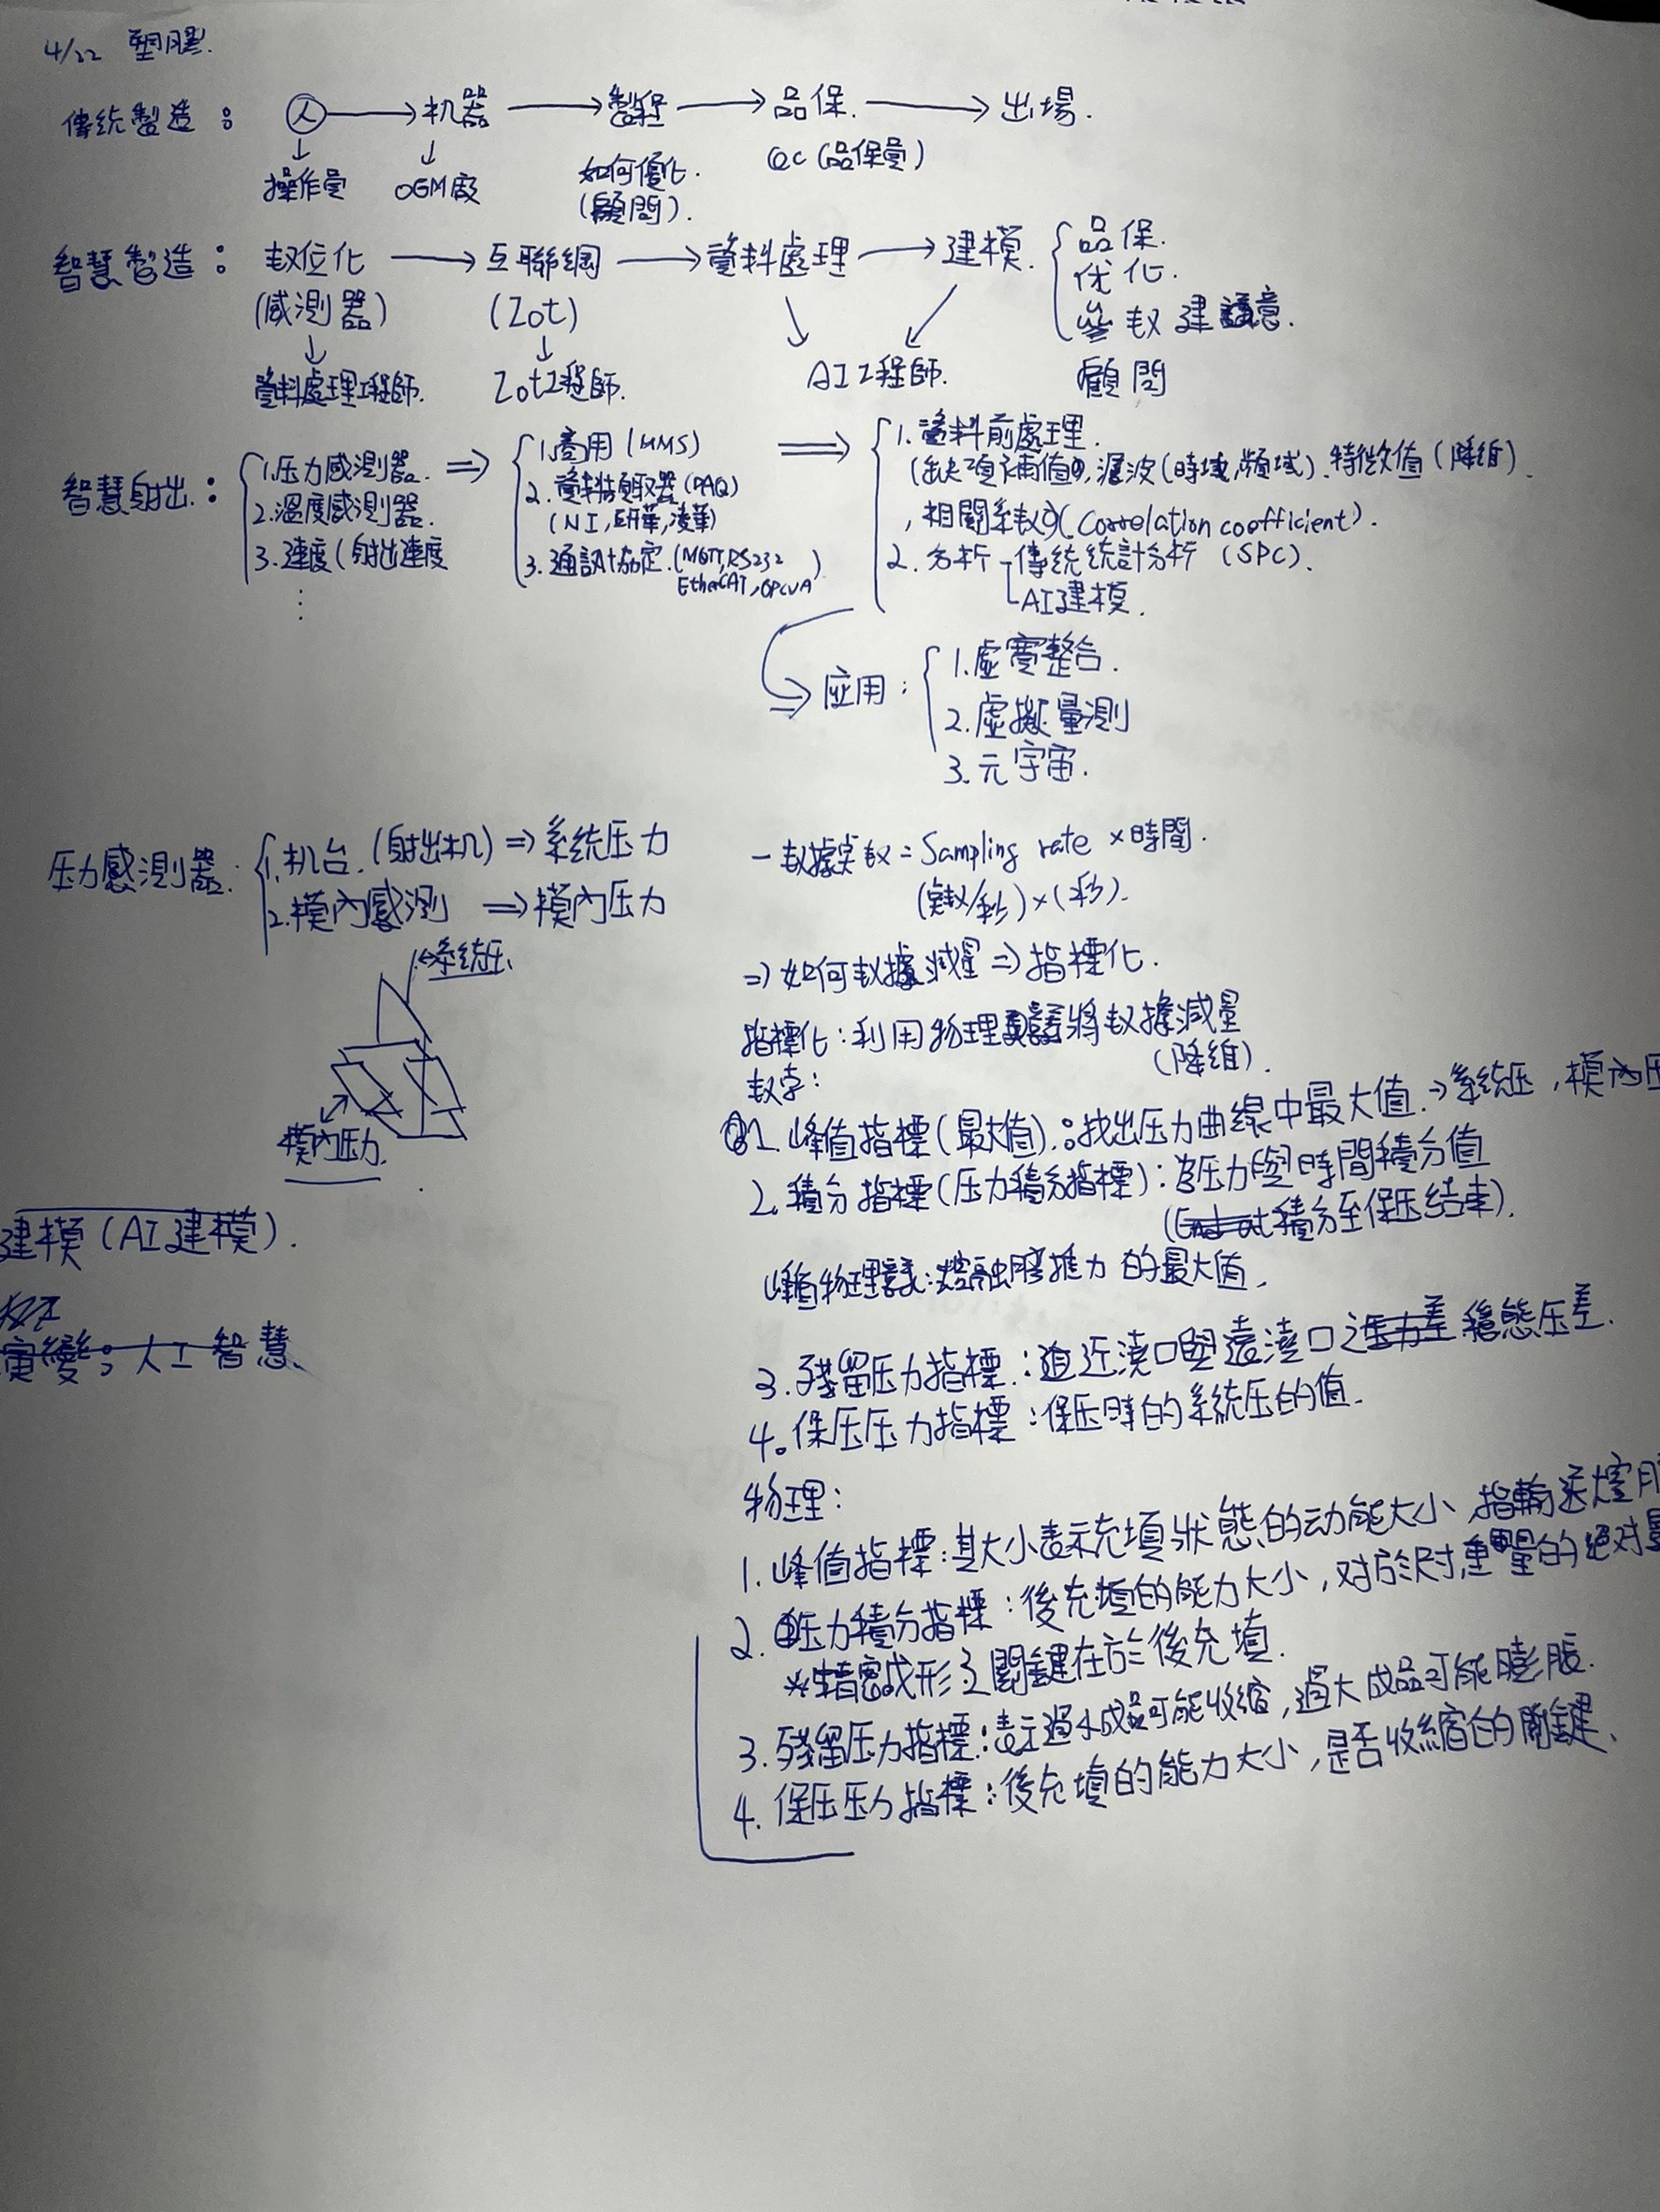 4/22 塑膠.
傳統製造：人 → 机器 → 製程 → 品保. → 出場.
操作員 OGM廠 如何優化. QC (品保員)
(顧問).
智慧製造：数位化 → 互聯網 → 資料處理 → 建模. 品保.
优化.
(感測器) (Iot) 参数建議.
資料處理工程師. Iot工程師. AI工程師. 顧問
智慧射出： 1.压力感測器. ⇒
2.溫度感測器.
3.速度(射出速度
⋮
1.商用(MMS) ⇒
2.資料擷取器(DAQ)
(NI,研華,凌華)
3.通訊協定.(MQTT,RS232
EtherCAT,OPCUA)
1.資料前處理.
(缺項補值,濾波(時域,頻域).特徵值(降維).
,相關系数(Correlation coefficient).
2.分析 傳統統計分析 (SPC).
AI建模.
应用： 1.虛實整合.
2.虛擬量測
3.元宇宙.
压力感測器. 1.机台.(射出机) ⇒ 系統压力
2.模內感測 ⇒ 模內压力
←系統压.
模內压力.
建模(AI建模).
演變：人工智慧.
一数據笑数 = Sampling rate × 時間.
(笑数/秒)×(秒).
⇒ 如何数據減量 ⇒ 指標化.
指標化：利用物理 將数據減量
(降維).
数字：
1.峰值指標(最大值).：找出压力曲線中最大值.→系統压,模內压
2.積分指標(压力積分指標)：压力與時間積分值
(積分至保压結束).
峰值物理意義：熔融膠推力的最大值.
3.殘留压力指標.：近澆口與遠澆口之压力差 穩態压差.
4.保压压力指標：保压時的系統压的值.
物理：
1.峰值指標：其大小表示充填狀態的动能大小,指輸送熔
2.压力積分指標：後充填的能力大小,对於尺寸,重量的絕对
*精密成形之關鍵在於後充填.
3.殘留压力指標：表示過小成品可能收縮,過大成品可能膨脹.
4.保压压力指標：後充填的能力大小,是否收縮的關鍵.